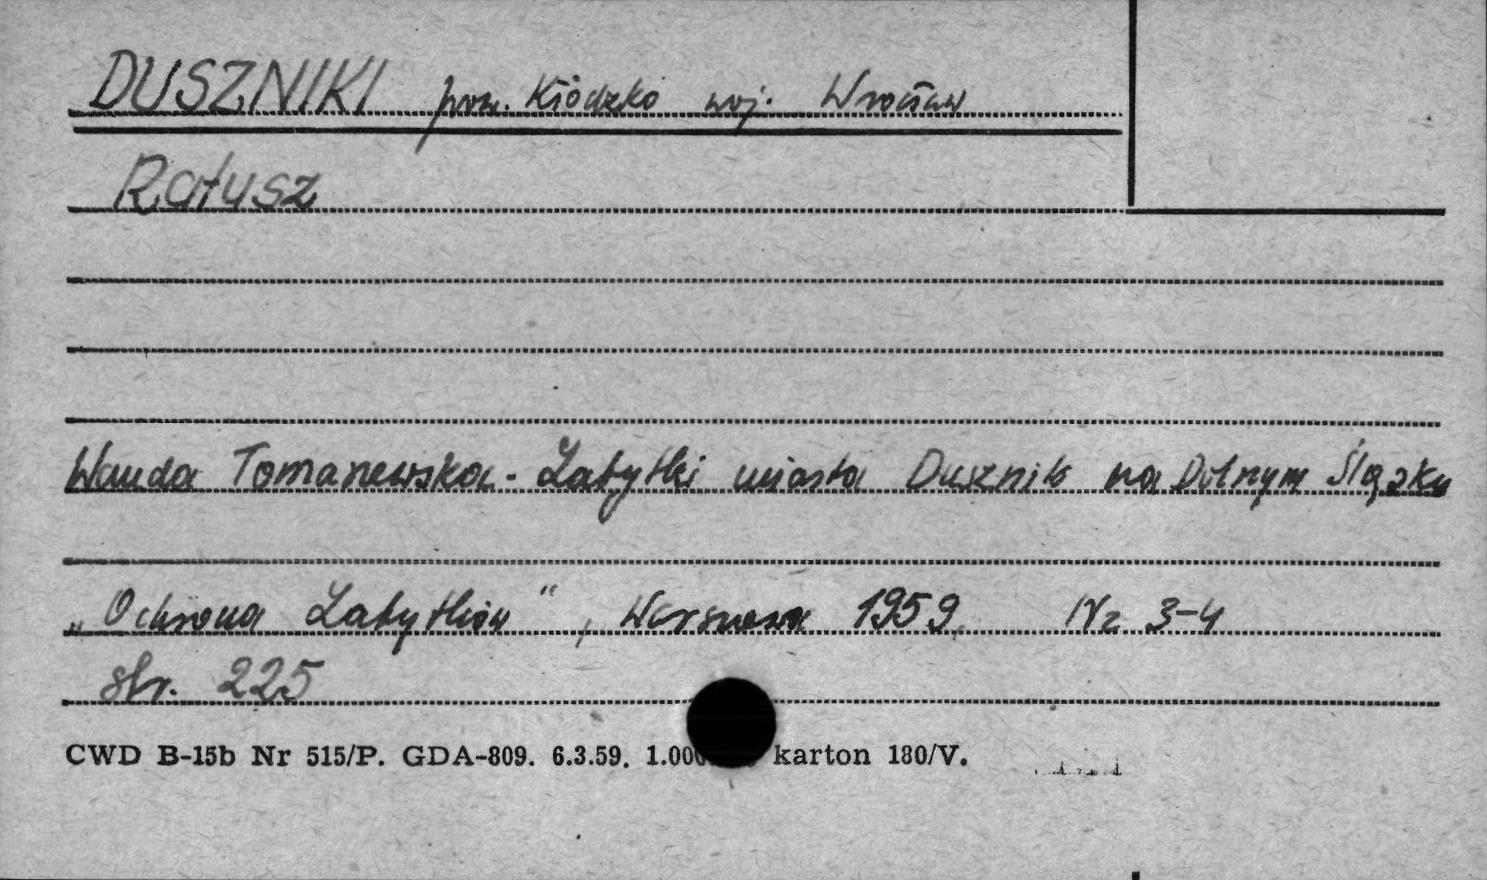 DUSZNIKI pow. Kłódzko woj. Wrocław
Ratusz
Wanda Tomanewska - Zabytki miasta Dusznik na Dolnym Śląsku
„Ochrona Zabytków", Warszawa 1959, Nr 3-4
str. 225
CWD B-15b Nr 515/P. GDA-809. 6.3.59. karton 180/V.